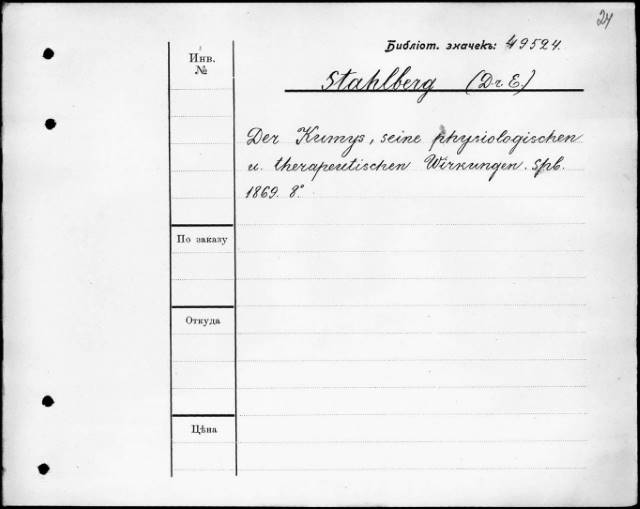 24
Библіот. значекъ: 49524.
Инв.
№
Stahlberg (Dr E.)
Der Kumys, seine physiologischen
u. therapeutischen Wirkungen. Spb.
1869. 8°.
По заказу
Откуда
Цѣна